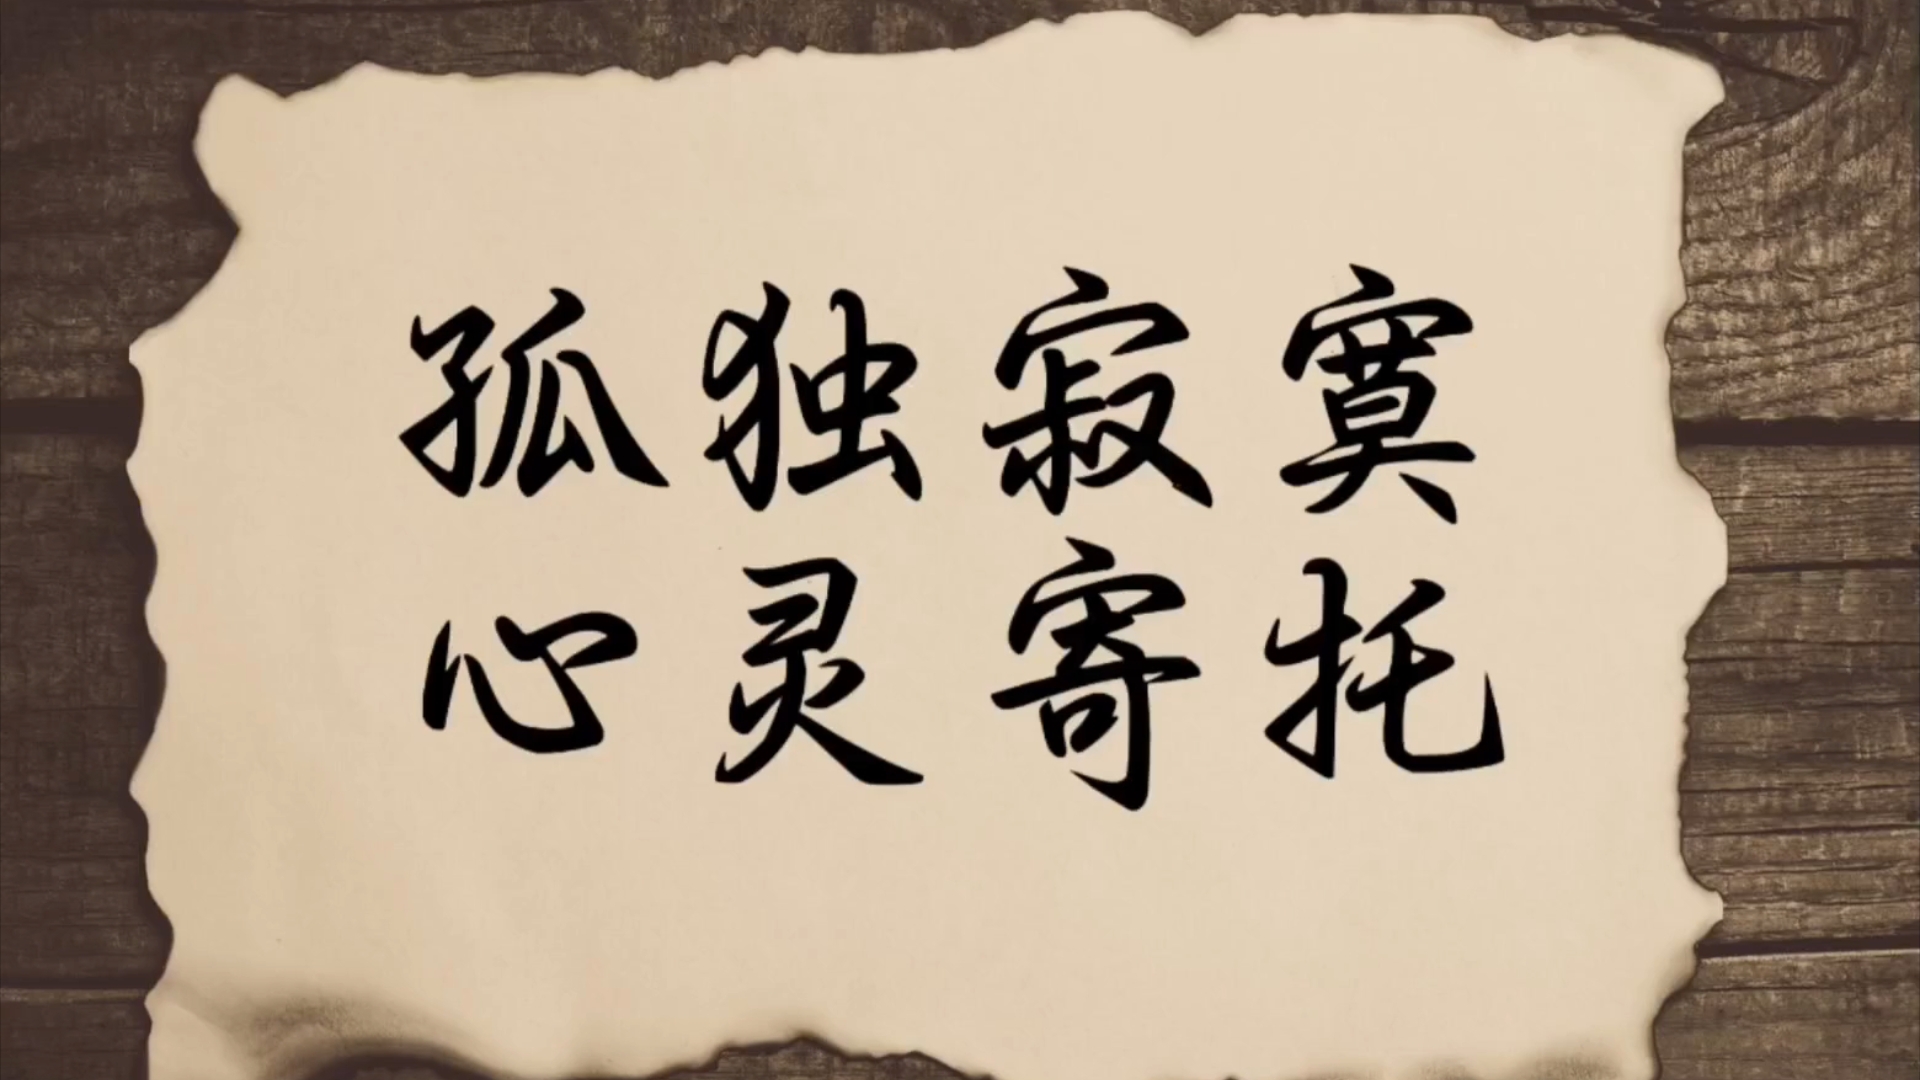 孤独寂寞
心灵寄托